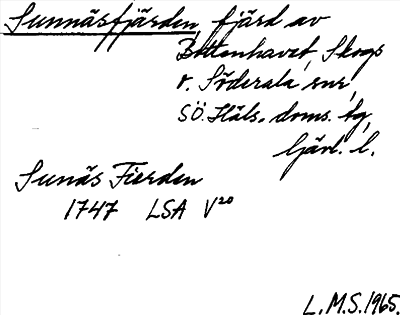 Sunnäsfjärden, fjärd av
Bottenhavet, Skogs
o. Söderala snr,
SÖ. Häls. doms. tg,
Gävl. l.
Sunäs Fierden
1747 LSA V20
L.M.S. 1965.